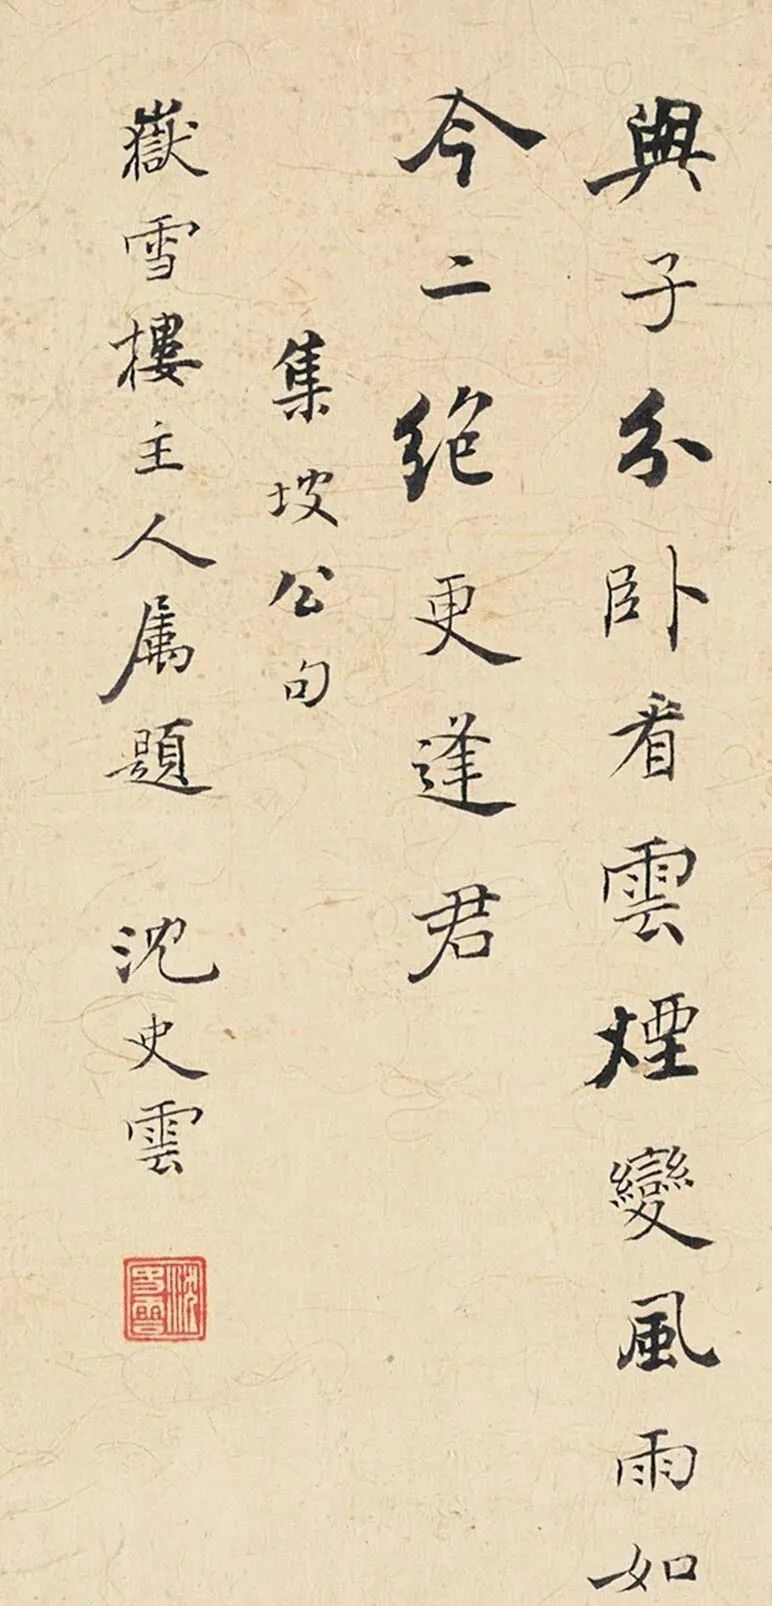 與子分卧看雲煙變風雨如
今二絶更逢君
集坡公句
嶽雪樓主人属題 沈史雲
沈史雲